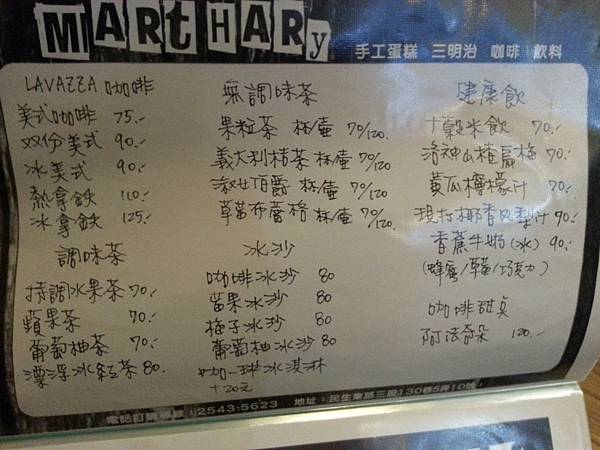 MARTHARy
手工蛋糕 三明治 咖啡 飲料
LAVAZZA 咖啡
美式咖啡 75.-
双份美式 90.-
冰美式 90.-
熱拿鉄 110.-
冰拿鉄 125.-
調味茶
特調水果茶 70.-
蘋果茶 70.-
葡萄柚茶 70.-
漂浮冰紅茶 80.
無調味茶
果粒茶 杯/壺 70/120.
義大利桔茶 杯/壺 70/120.
淑女伯爵 杯/壺 70/120.
草莓布蕾格 杯/壺 70/120.
冰沙
咖啡冰沙 80
莓果冰沙 80
梅子冰沙 80
葡萄柚冰沙 80
*加一球冰淇淋
+20元
健康飲
十穀米飲 70.-
洛神山楂烏梅 70.-
黃瓜檸檬汁 70.-
現打椰香鳳梨汁 90.-
香蕉牛奶(冰) 90.-
(蜂蜜/草莓/巧克力)
咖啡甜点
阿法奇朵 120.-
電話訂購專線:2543-5623 地址:民生東路三段130巷5弄10號